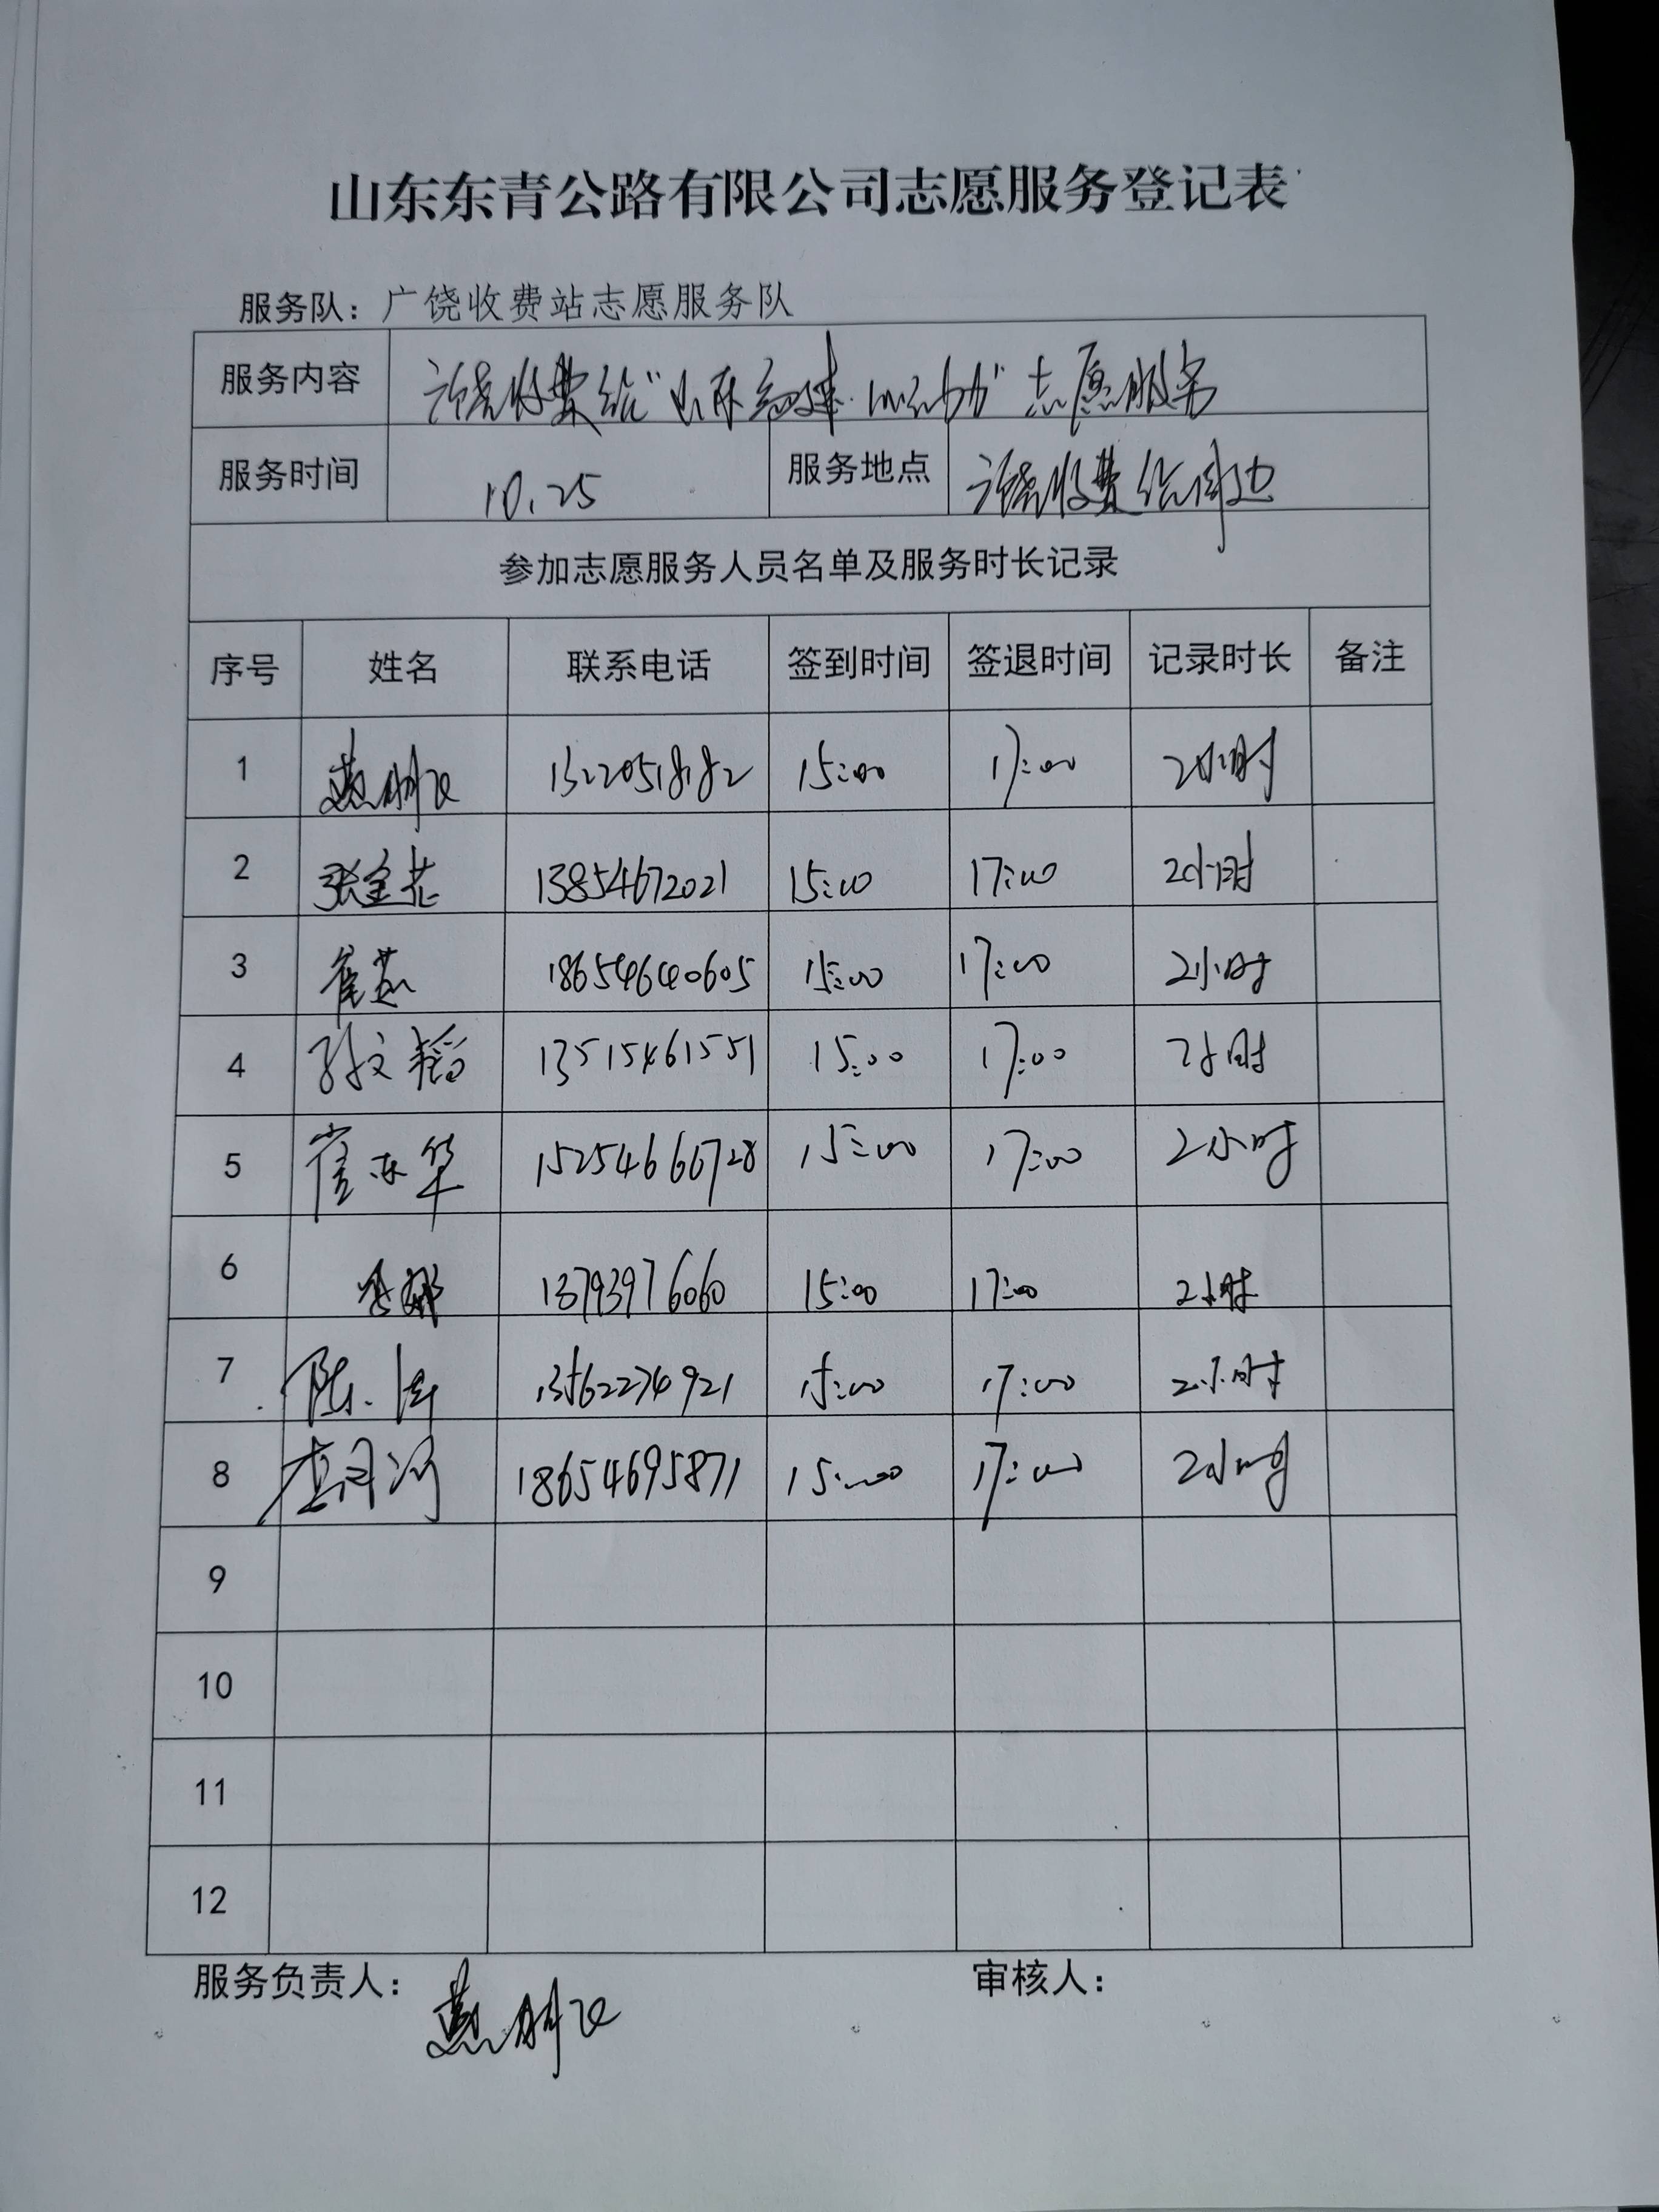 山东东青公路有限公司志愿服务登记表
服务队：广饶收费站志愿服务队
服务内容 广饶收费站“山东高速 ” 志愿服务
服务时间 10.25 服务地点 广饶收费站周边
参加志愿服务人员名单及服务时长记录
序号 姓名 联系电话 签到时间 签退时间 记录时长 备注
1 15:00 17:00 2小时
2 张金花 13854672021 15:00 17:00 2小时
3 崔燕 18654640605 15:00 17:00 2小时
4 孙文韬 13515461551 15:00 17:00 2小时
5 崔东华 15254666728 15:00 17:00 2小时
6 13793976060 15:00 17:00 2小时
7 陈洁 13562274921 15:00 17:00 2小时
8 李月河 18654695871 15:00 17:00 2小时
9
10
11
12
服务负责人： 审核人：